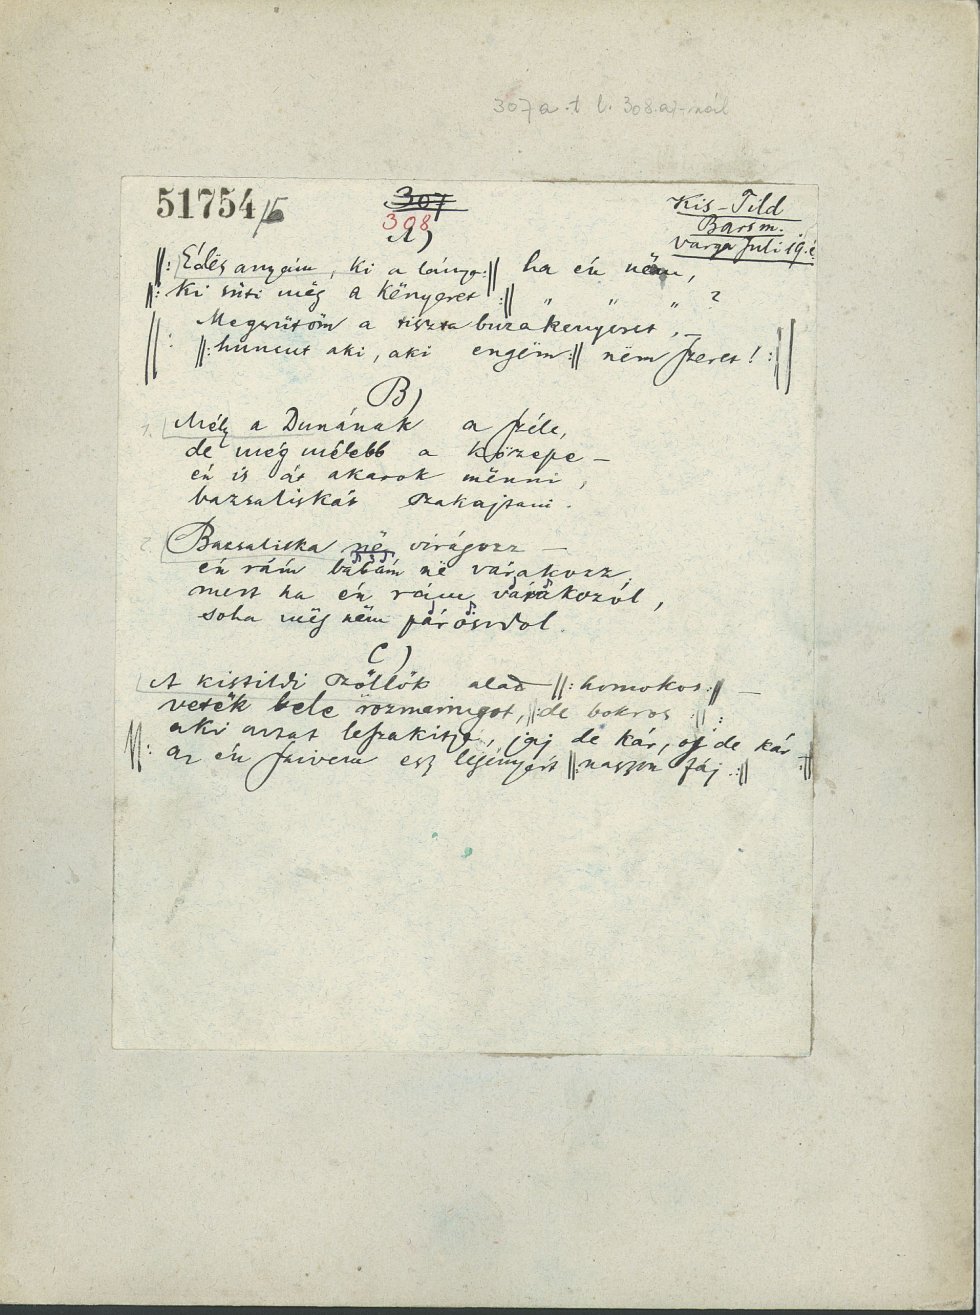 307 a.t l. 308.a)-nál
51754/5
307
308
A)
Kis-Tild
Bars m.
Varga Juli 19. é.
||: Édës anyám, ki a lánya :|| ha én nëm,
||: Ki süti mëg a kënyeret :|| " " " ?
||: Megsütöm a tiszta buzakenyeret, –
||: huncut aki, aki engëm :|| nëm szeret! :||
B)
1. Mély a Dunának a széle,
de még mélebb a közepe –
én is át akarok mënni,
bazsaliskát szakajtani.
2. Bazsaliska në virágozz –
én rám babám në várakozz.
mert ha én rám várakozól,
soha mëg nëm párosúdol.
C)
A kistildi szőllők alad ||: homokos :|| –
veték bele rozmaringot, ||: de bokros :||:
||: aki aszat leszakitja, jaj de kár, oj de kár
az én szivem egy legényért ||: naggyon fáj :|| :||